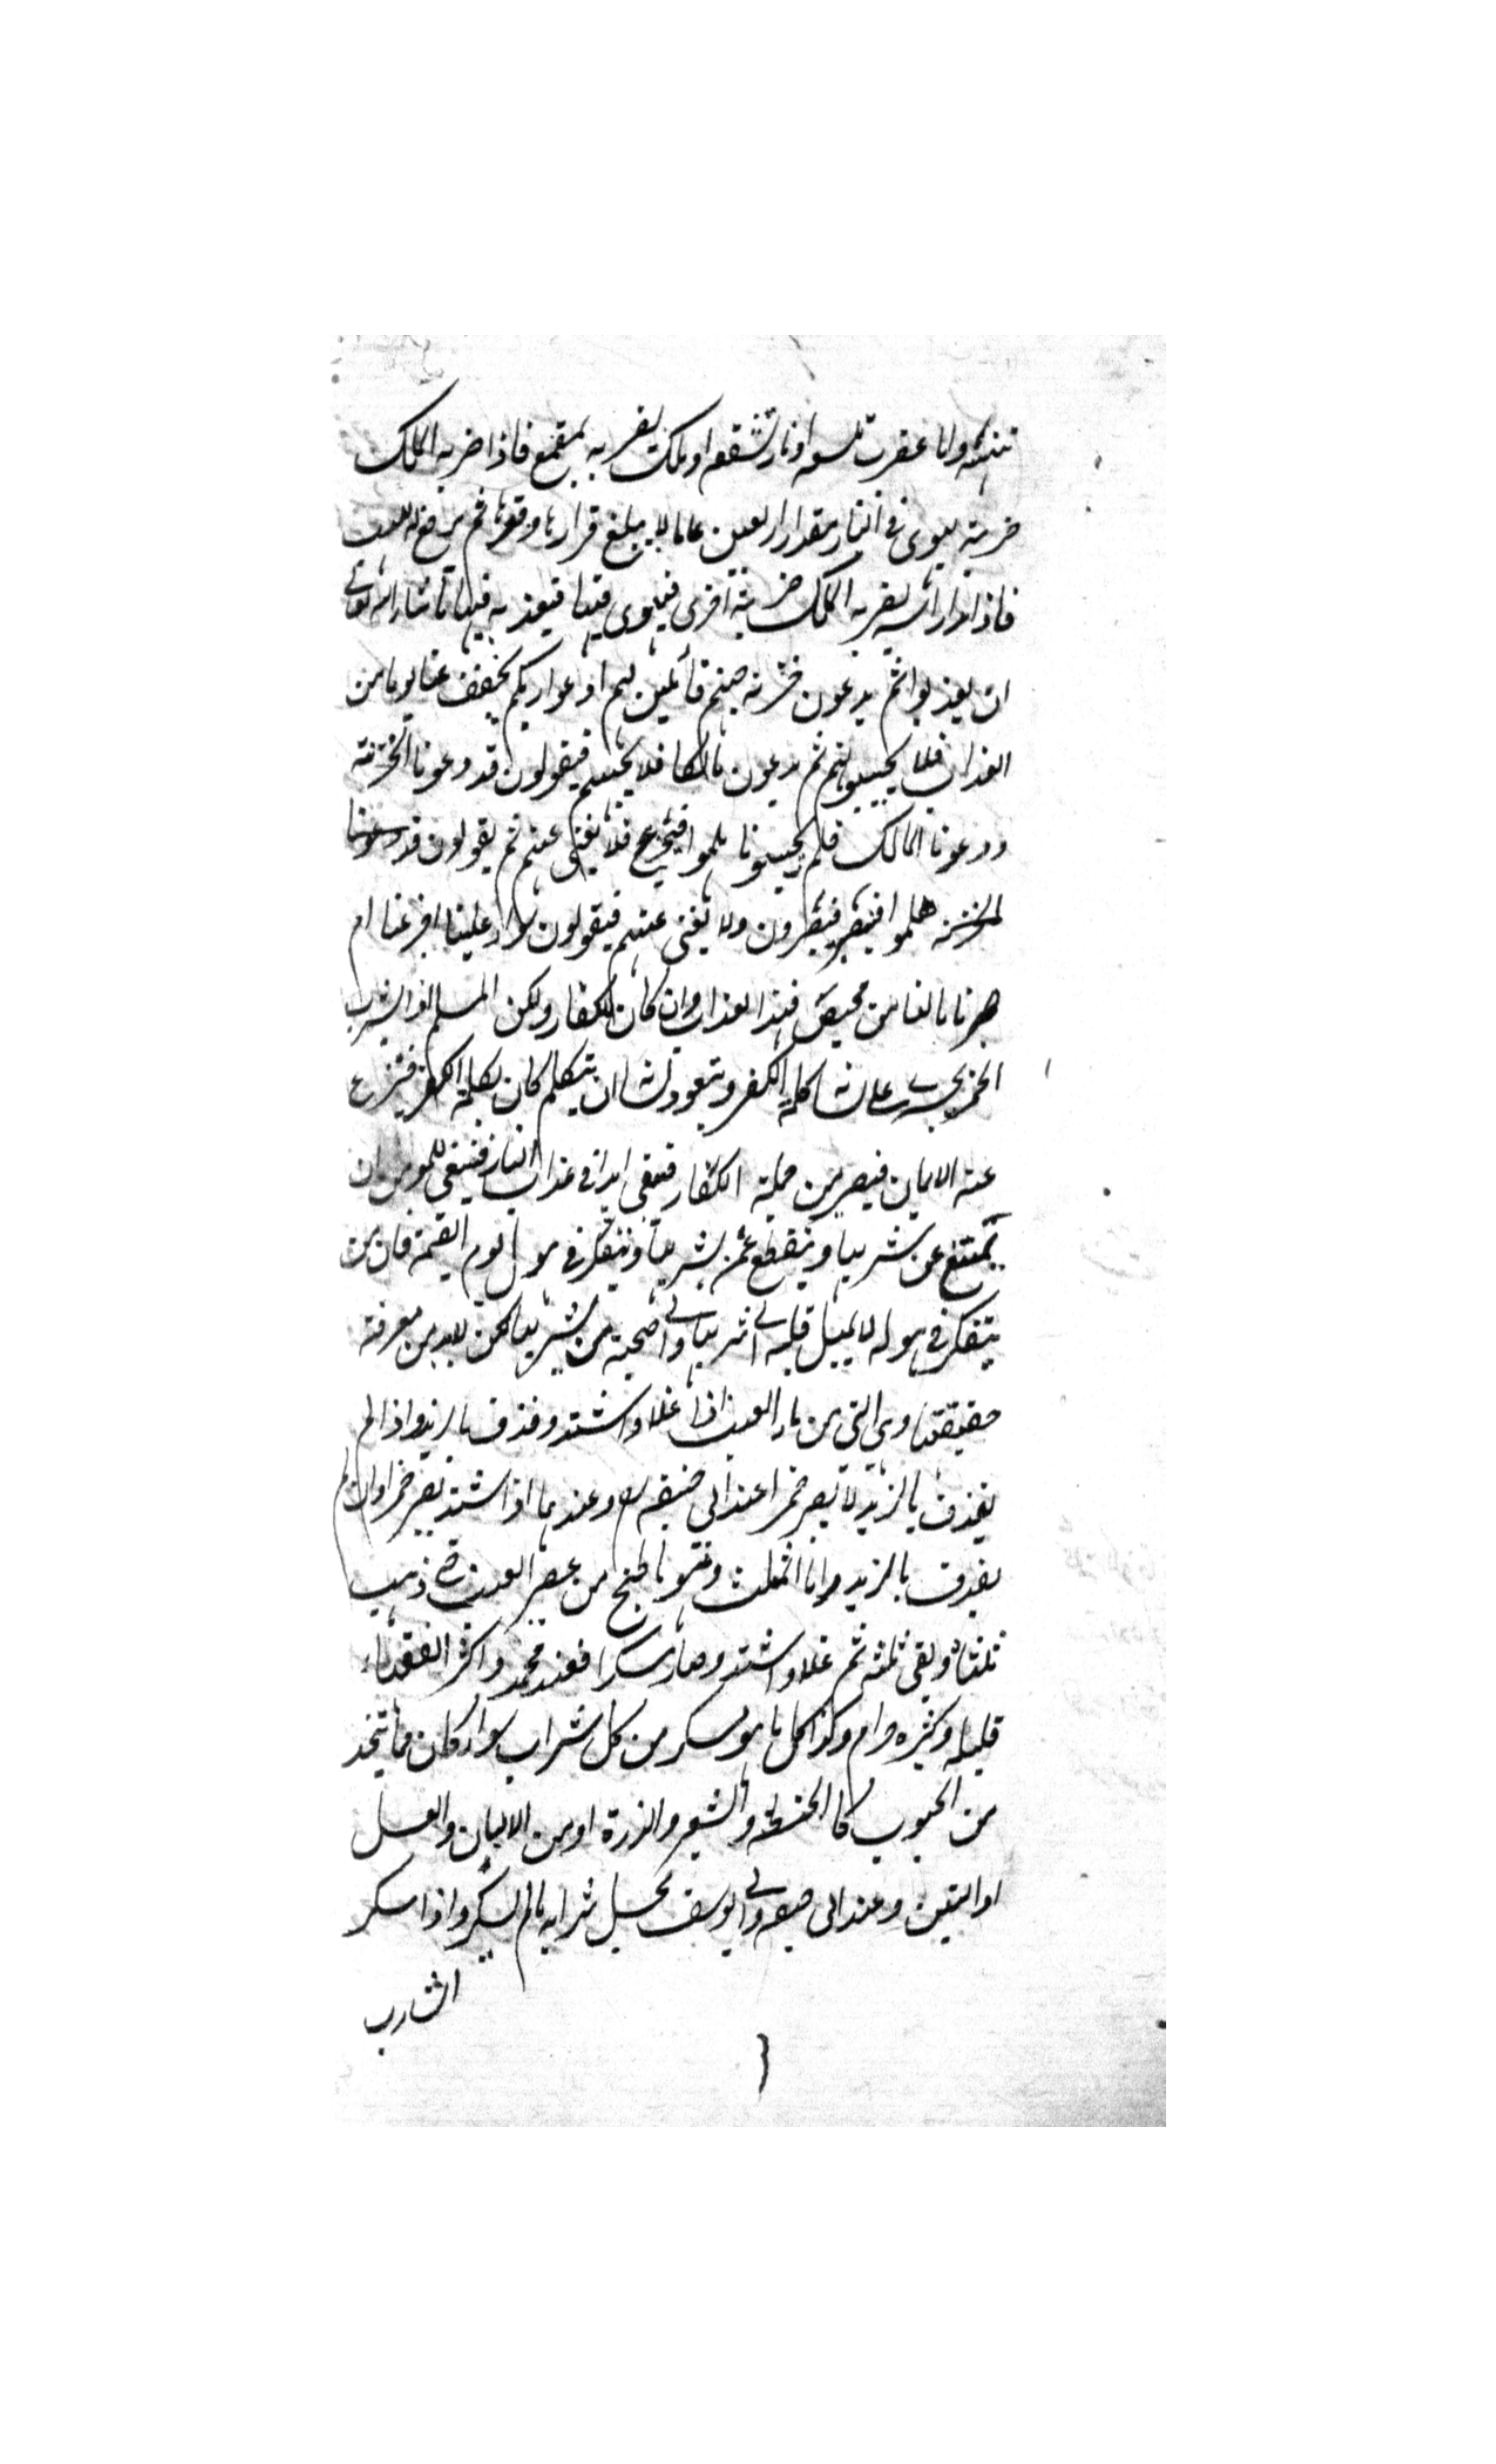 تنهشه واما عقرب تلسعه او نار تشقعه او ملك يضربه بمقمع فاذا ضربه الملك
ضربة يهوى في النار مقدار اربعين عاما لا يبلغ قرارها وقعرها ثم يرفعه اللهب
فاذا بدا رأسه يضربه الملك ضربة اخرى فيهوى فيها فيعذبه فيها ما شاء الله تعالى
ان يعذبوا ثم يدعون خزنة جهنم قائلين لهم ادعوا ربكم يخفف عنا يوما من
العذاب فلا يجيبونهم ثم يدعون مالكا فلا يجيبهم فيقولون قد دعونا الخزنة
ودعونا المالك فلم يجيبونا هلموا فنجزع فلا يغنى عنهم ثم يقولون قد دعونا
الخزنة هلموا فنصبر فيصبرون ولا يغنى عنهم فيقولون سواء علينا اجزعنا ام
صبرنا ما لنا من محيص فهذا العذاب وان كان للكفار ولكن المسلم اذا شرب
الخمر يجرى على لسانه كلمة الكفر ويتعود لسانه ان يتكلم كان بكلمة الكفر فينزع
عنه الايمان فيصير من جملة الكفار فيبقى ابدا في عذاب النار فينبغى للمؤمن ان
يمتنع عن شربها وينقطع عمن شربها ويتفكر في هول يوم القيمة فان من
يتفكر في هوله لا يميل قلبه الى شربها والى صحبة من يشربها لكن لا بد من معرفة
حقيقتها وهى التي من ماء العنب اذا غلا واشتد وقذف بالزبد واذا لم
يقذف بالزبد لا يصير خمرا عند ابي حنيفة وعندهما اذا اشتد يصير خمرا وان لم
يقذف بالزبد واما المثلث وهو ما طبخ من عصير العنب حتى ذهب
ثلثاه وبقى ثلثه ثم غلا واشتد وصار مسكرا فعند محمد واكثر الفقهاء
قليله وكثيره حرام وكذا كل ما هو مسكر من كل شراب سواء كان مما يتخذ
من الحبوب كالحنطة والشعير والذرة او من الالبان والعسل
او التين وعند ابي حنيفة وابي يوسف يحل شرابه ما لم يسكر واذا سكر
الشارب